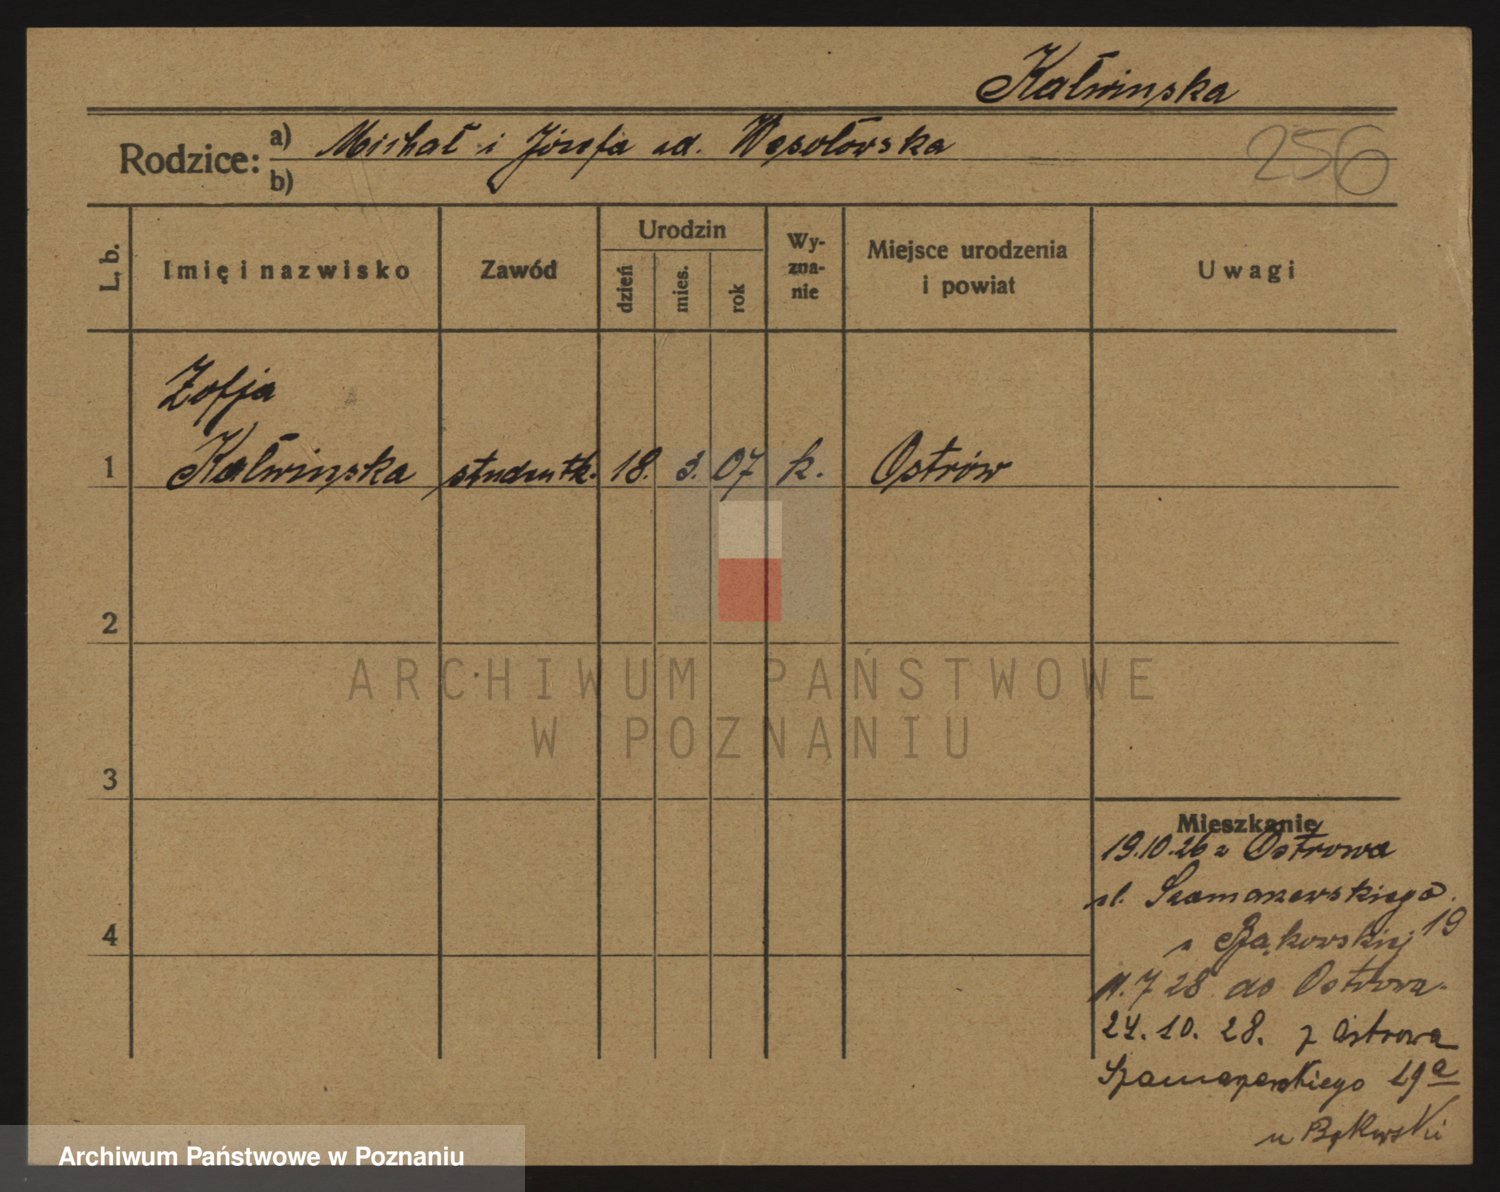 Kałwinska
Rodzice: a) Michał i Józefa ud. Wesołowska
b)
256
L. b.
Imię i nazwisko
Zawód
Urodzin
dzień
mies.
rok
Wy-
zna-
nie
Miejsce urodzenia
i powiat
Uwagi
Zofja
1 Kałwinska studentk. 18. 3. 07 k. Ostrów
2
3
4
ARCHIWUM PAŃSTWOWE
W POZNANIU
Mieszkanie
19.10.26 z Ostrowa
ul. Szamarzewskiego
19
u Bąkowskiej
11.7 28 do Ostrowa.
24.10. 28. z Ostrowa
Szamarzewskiego 19a
u Bąkowski
Archiwum Państwowe w Poznaniu